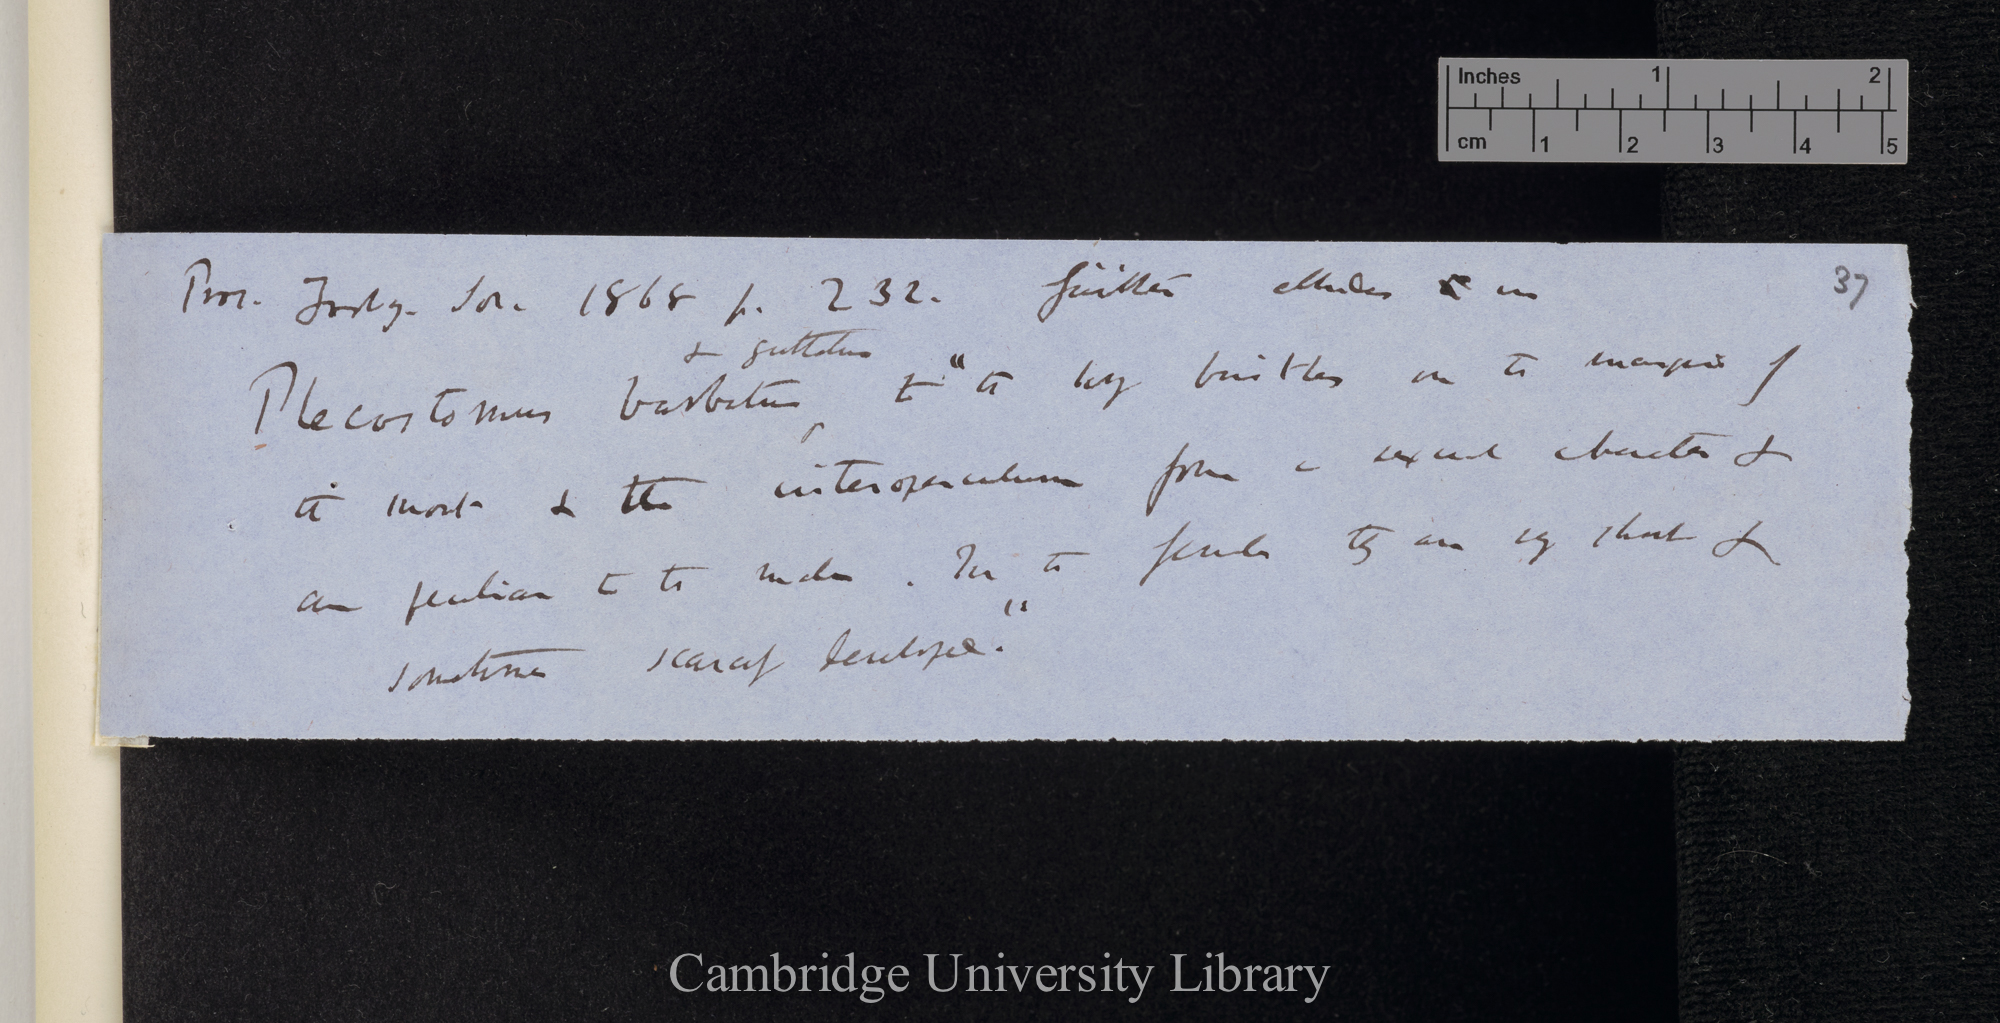 Inches 1 2
cm 1 2 3 4 5
37
Proc. Zoolog. Soc. 1868 p. 232. Günther alludes in
& guttatus
Plecostomus barbatus, to "the long bristles on the margin of
the snout & the interoperculum form a sexual character &
are peculiar to the males. In the female they are very short &
sometimes scarcely developed."
Cambridge University Library